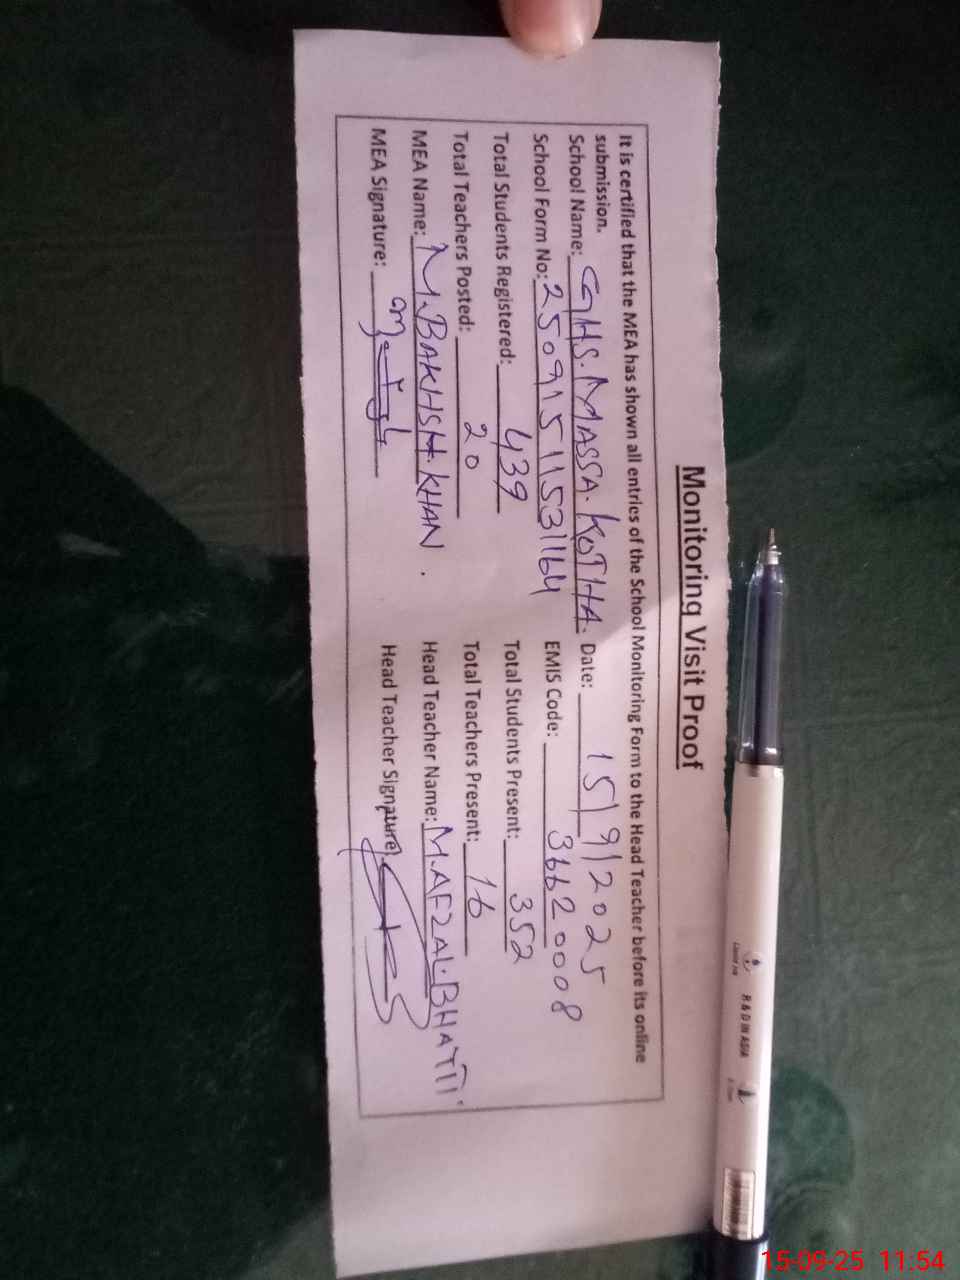 Monitoring Visit Proof
It is certified that the MEA has shown all entries of the School Monitoring Form to the Head Teacher before its online
submission.
School Name: GHS.MASSA.KOTHA. Date: 15/9/2025
School Form No: 25091511531164 EMIS Code: 36620008
Total Students Registered: 439 Total Students Present: 352
Total Teachers Posted: 20 Total Teachers Present: 16
MEA Name: M.BAKHSH.KHAN. Head Teacher Name: M.AFZAL.BHATTI.
MEA Signature: Head Teacher Signature:
R & D IN ASIA
15-09-25 11:54